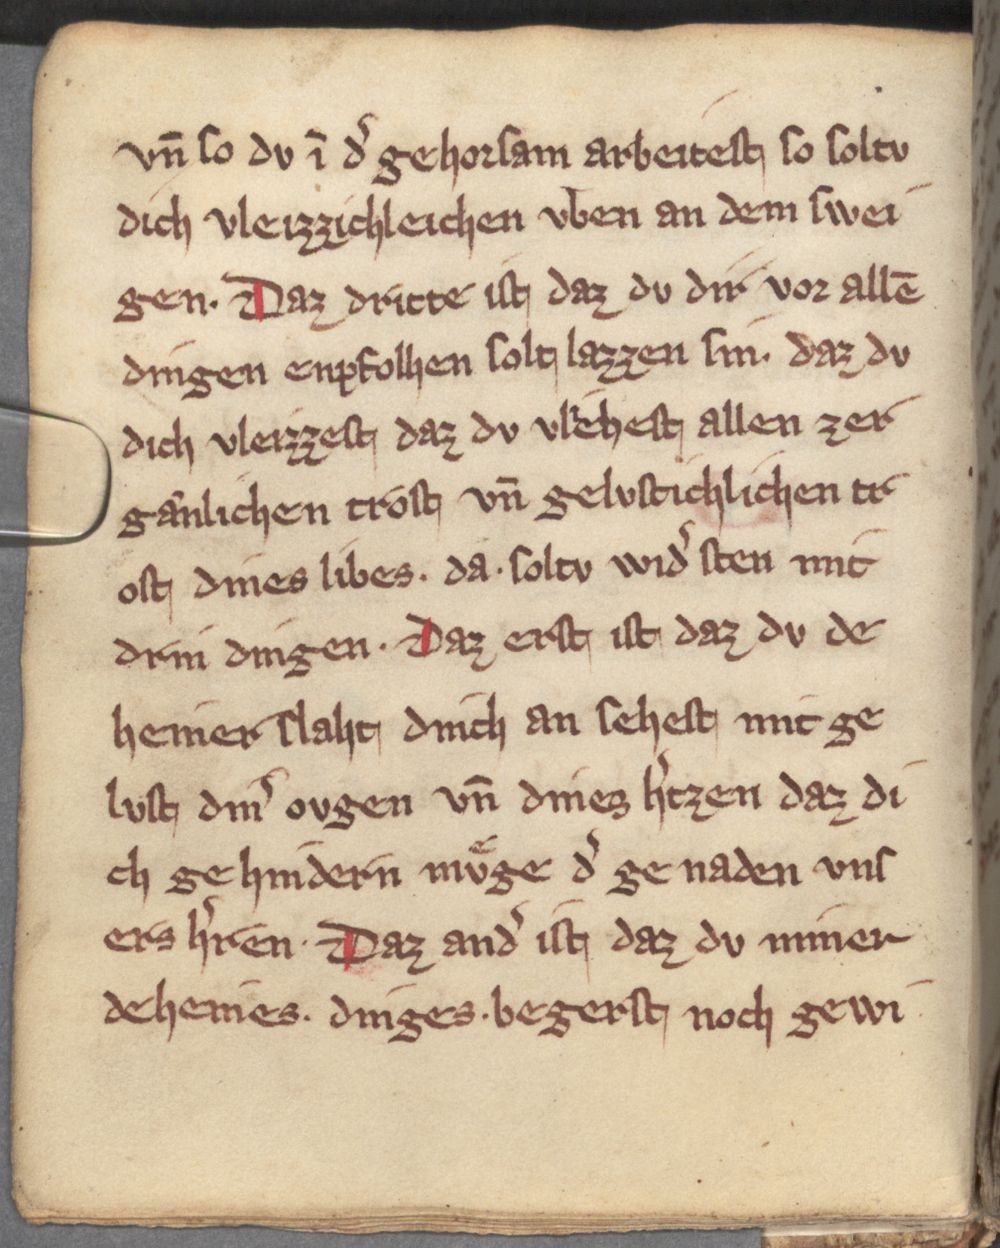 vn̄ so dv ī d᾽ gehorsam arbeitest so soltv
dich vleizzichleichen vben an dem swei
gen. Daz dritte ist daz dv dir vor allē
dingen enpfolhen solt lazzen sin. daz dv
dich vleizzest daz dv vlehest allen zer
ganlichen trost vn̄ gelvstichlichen tr
ost dines libes. da. soltv wid᾽ sten mit
drin dingen. Daz erst ist daz dv de
heiner slaht dinch an sehest mit ge
lvst din᾽ ovgen vn̄ dines h᾽tzen daz di
ch ge hindern mvͤge d᾽ ge naden vns
ers h᾽ren. Daz and᾽ ist daz dv nimer
deheines. dinges. begerst noch gewi